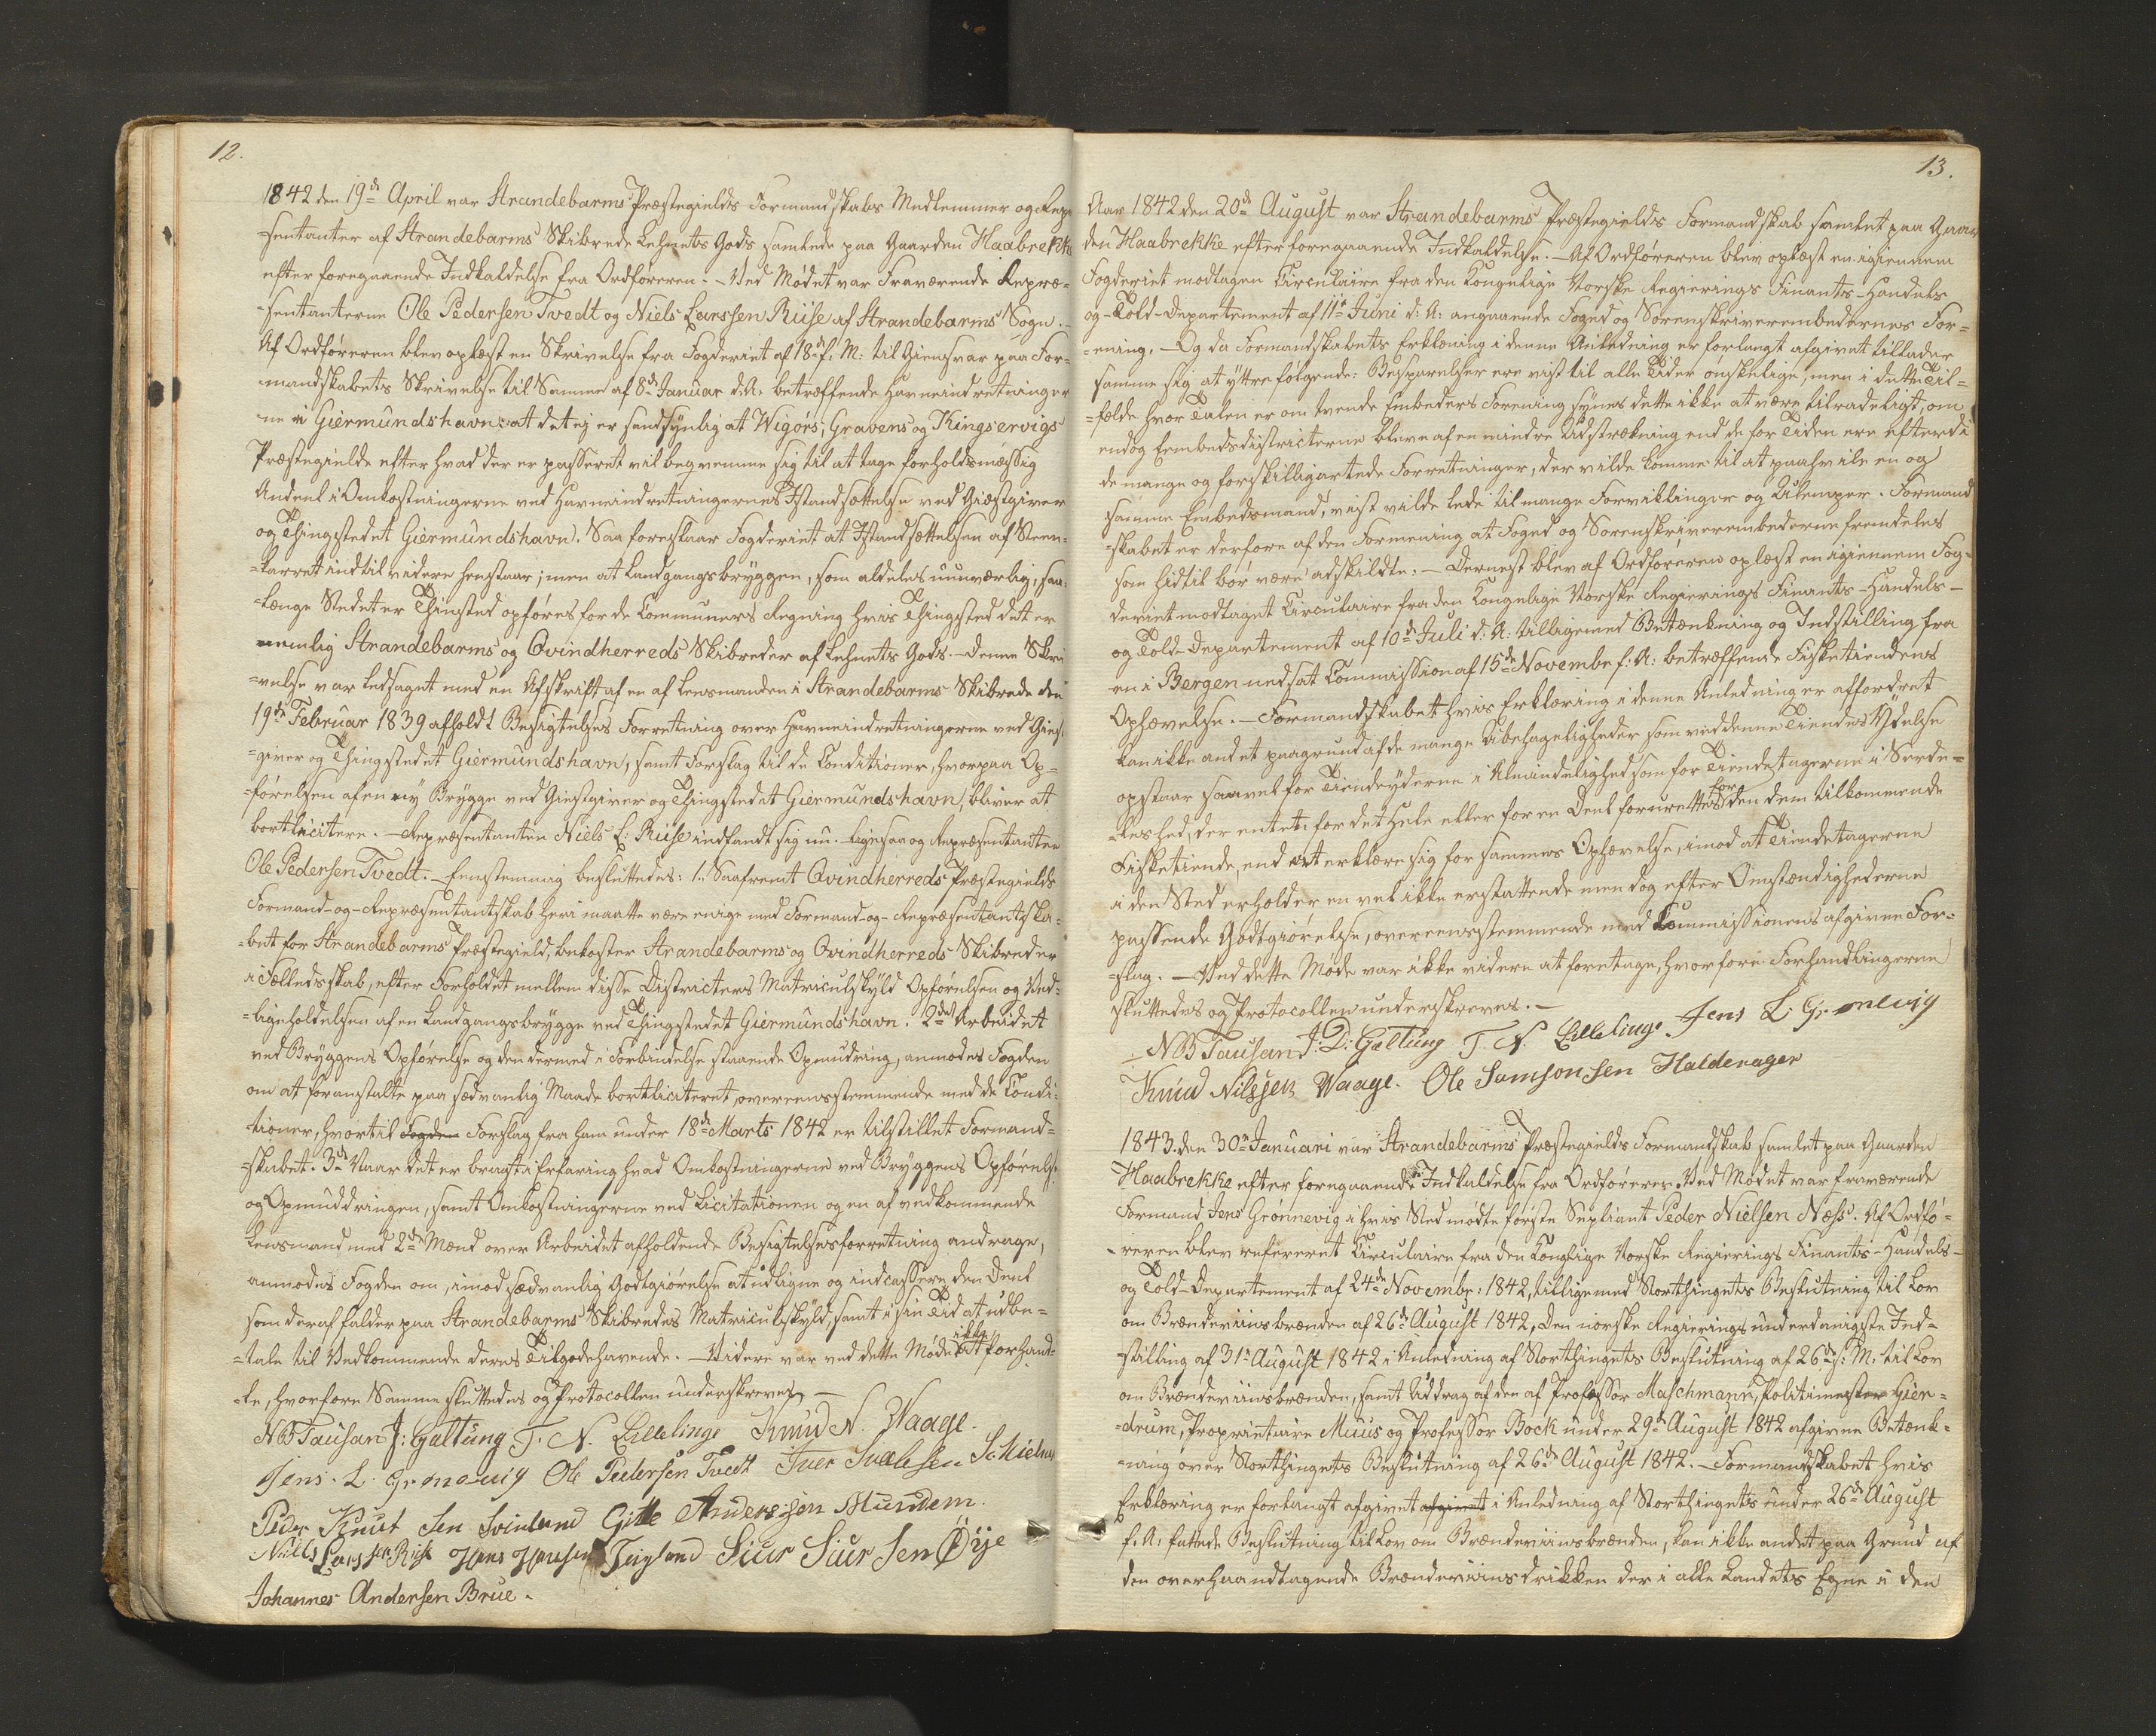 12.
1842 den 19de April var Strandebarms Præstegields Formandskabs Medlemmer og Repræ
sentanter af Strandebarms Skibrede Lehnets Gods samlede paa Gaarden Haabrekke
efter foregaaende Indkaldelse fra Ordføreren. – Ved Mødet var Fraværende Repræ-
-sentanterne Ole Pedersen Tvedt og Niels Larssen Riise af Strandebarms Sogn. –
Af Ordføreren blev oplæst en Skrivelse fra Fogderiet af 18de f: M: til Giensvar paa For-
mandskabets Skrivelse til Samme af 8de Januar d.A. betræffende Havneindretninger
ne i Giermundshavn: at det ej er sandsynlig at Wigørs, Gravens og Kingservigs
Præstegielde efter hvad der er passeret vil beqvemme sig til at tage forholdsmæssig
Andeel i Omkostningerne ved Havneindretningernes Istandsættelse ved Giæstgiver
og Thingstedet Giermundshavn. Saa foreslaar Fogderiet at Istandsættelsen af Steen-
-karret indtil videre henstaar; men at Landgangsbryggen, som aldeles uunværlig, saa-
-længe Stedet er Thingsted opføres for de Communers Regning hvis Thingsted det er
nemlig Strandebarms og Qvindherreds Skibreder af Lehnets Gods. – Denne Skri
-velse var ledsaget med en Afskrift af en af Lensmanden i Strandebarms Skibrede den
19de Februar 1839 afholdt Besigtelses Forretning over Havneindretningerne ved Giest
=giver og Thingstedet Giermundshavn, samt Forslag til de Conditioner, hvorpaa Op-
-førelsen af en ny Brygge ved Giestgiver og Thingstedet Giermundshavn, bliver at
bortlicitere. – Repræsentanten Niels L: Riise indfandt sig nu. ligesaa og Repræsentanten
Ole Pedersen Tvedt. – Eenstemmig besluttedes: 1., Saafremt Qvindherreds Præstegields
Formand- og -Repræsentantskab heri maatte være enige med Formand- og -Repræsentantska-
-bet for Strandebarms Præstegield, bekoster Strandebarms og Qvindherreds Skibreder
i Fælledsskab, efter Forholdet mellem disse Districters Matriculskyld Opførelsen og Ved-
-ligeholdelsen af en Landgangsbrygge ved Thingstedet Giermundshavn. 2det Arbeidet
ved Bryggens Opførelse og den dermed i Forbindelse staaende Opmudring, anmodes Fogden
om at foranstalte paa sædvanlig Maade bortliciteret, overeensstemmende med de Condi-
tioner, hvortil Fogden Forslag fra ham under 18de Marts 1842 er tilstillet Formand-
-skabet. 3de Naar det er bragt i Erfaring hvad Omkostningerne ved Bryggens Opførelse
og Opmuddringen, samt Omkostningerne ved Licitationen og en af vedkommende
Lensmand med 2de Mænd over Arbeidet afholdende Besigtelsesforretning andrage,
anmodes Fogden om, imod sædvanlig Godtgiørelse at udligne og indcassere den Deel
som deraf falder paa Strandebarms Skibredes Matriculskyld, samt i sin Tid at udbe-
-tale til Vedkommende deres Tilgodehavende. – Videre var ved dette Møde ikke at forhand-
-le, hvorfore Samme sluttedes og Protocollen underskreves. –
NB Tausan J: Galtung T. N. Lillelinge Knud N. Waage.
Jens. L. Grønevig Ole Pedersen Tvedt Iver
Peder Knut sen Svinland Gitle Anderssøn Mundem.
Niels Larssen Riise Hans Hansen Teigland Siur Siursen Øye
Johannes Andersen Brue.
13.
Aar 1842 den 20de August var Strandebarms Præstegields Formandskab samlet paa Gaar
den Haabrekke efter foregaaende Indkaldelse. – Af Ordføreren blev oplæst en igiennem
Fogderiet modtagen Circulaire fra den Kongelige Norske Regierings Finants- Handels
og -Told-Departement af 11te Juni d: A: angaaende Foged og Sorenskriverembedernes For-
-ening. – Og da Formandskabets Erklæring i denne Anledning er forlangt afgivet tillader
samme sig at yttre følgende: Besparelser ere vist til alle Tider ønskelige, men i dette Til-
-fælde hvor Talen er om tvende Embeders Forening synes dette ikke at være tilraadeligt, om
endog Embedsdistricterne bleve af en mindre Udstrækning end de for Tiden ere efterdi
de mange og forskilligartede Forretninger, der vilde komme til at paahvile en og
samme Embedsmand, vist vilde lede til mange Forviklinger og Ulemper. Formand
-skabet er derfore af den Formening at Foged og Sorenskriverembederne fremdeles
som hidtil bør være adskildte. – Dernest blev af Ordføreren oplæst en igiennem Fog-
deriet modtaget Circulaire fra den Kongelige Norske Regierings Finants- Handels-
og Told-Departement af 10de Juli d: A: tilligemed Betænkning og Indstilling fra
en i Bergen nedsat Commission af 15de Novembe f: A: betræffende Fisketiendens
Ophævelse. – Formandskabet hvis Erklæring i denne Anledning er affordret
kan ikke andet paagrund af de mange Ubehageligheder som ved denne Tiendes Ydelse
opstaar saavel for Tiendeyderne i Almindelighed som for Tiendetagerne i Særde-
-leshed, der enten for det Hele eller for en Deel forurettes for den dem tilkommende
Fisketiende, end at erklære sig for sammes Ophævelse, imod at Tiendetagerne
i den Sted erholder en vel ikke erstattende men dog efter Omstændighederne
passende Godtgiørelse, overeensstemmende med Commissionens afgivne For-
-slag. – Ved dette Møde var ikke videre at foretage, hvorfore Forhandlingerne
sluttedes og Protocollen underskreves. –
NB Tausan J: D: Galtung T. N. Lillelinge Jens L. Grønevig
Knud Nilssen Waage. Ole Samsonsen Haldenager
1843. den 30te Januari var Strandebarms Præstegields Formandskab samlet paa Gaarden
Haabrekke efter foregaaende Indkaldelse fra Ordføreren. Ved Mødet var fraværende
Formand Jens Grønnevig i hvis Sted mødte første Supliant Peder Nielsen Næss. Af Ordfø-
-reren blev refereret Circulaire fra den Konglige Norske Regierings Finants- Handels-
og Told-Departement af 24de Novembr: 1842, tilligemed Storthingets Beslutning til Lov
om Brændeviinsbrænden af 26de August 1842, Den norske Regierings underdanigste Ind-
-stilling af 31te August 1842 i Anledning af Storthingets Beslutning af 26de s: M: til Lov
om Brændeviinsbrænden, samt Uddrag af den af Professor Maschmann, Politimester Gier-
-drum, Proprietaire Muus og Professor Bock under 29de August 1842 afgivne Betænk-
-ning over Storthingets Beslutning af 26de August 1842. – Formandskabet hvis
Erklæring er forlangt afgivet afgivet i Anledning af Storthingets under 26de August
f. A: fattede Beslutning til Lov om Brændeviinsbrænden, kan ikke andet paa Grund af
den overhaandtagende Brændeviinsdrikken der i alle Landets Egne i den